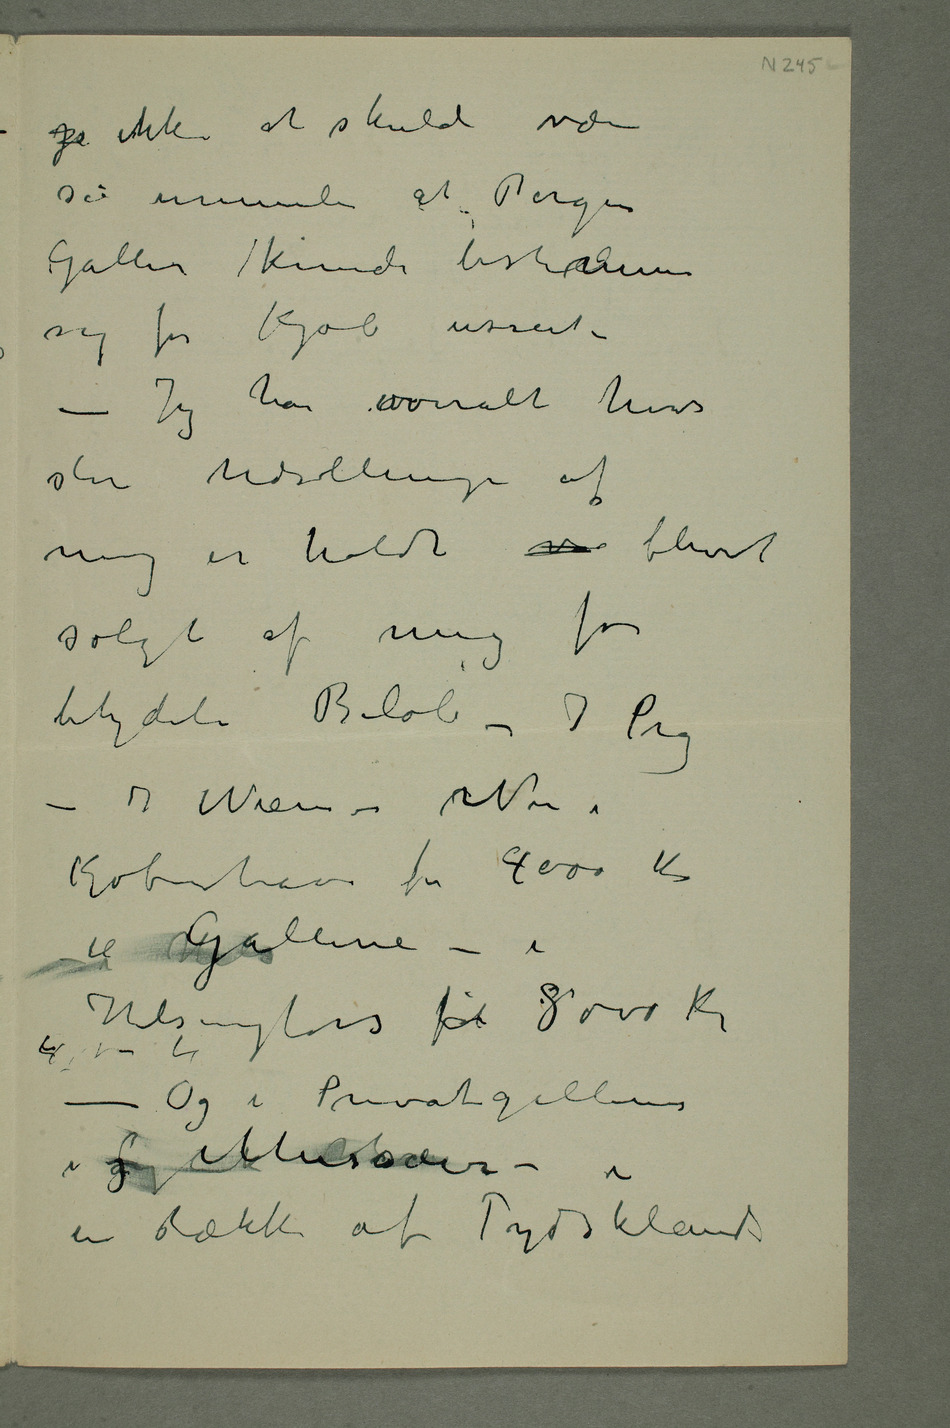 N 245
ja ikke at skulde være
så urimeli at Bergens
Galleri kunde bestemme
sig for Kjøb usset.
— Jeg har overalt hvor
store Udstillinger af
mig er holdt blevet
solgt af mig for
betydeli Beløb — I Prag
— I Wien — Nu i
Kjøbenhavn for 4000 Kr
til Galleriet — i
Helsingfors for 8000 Kr
— Og i Privatgallerier
i Museer — i
en Række af Tydsklands